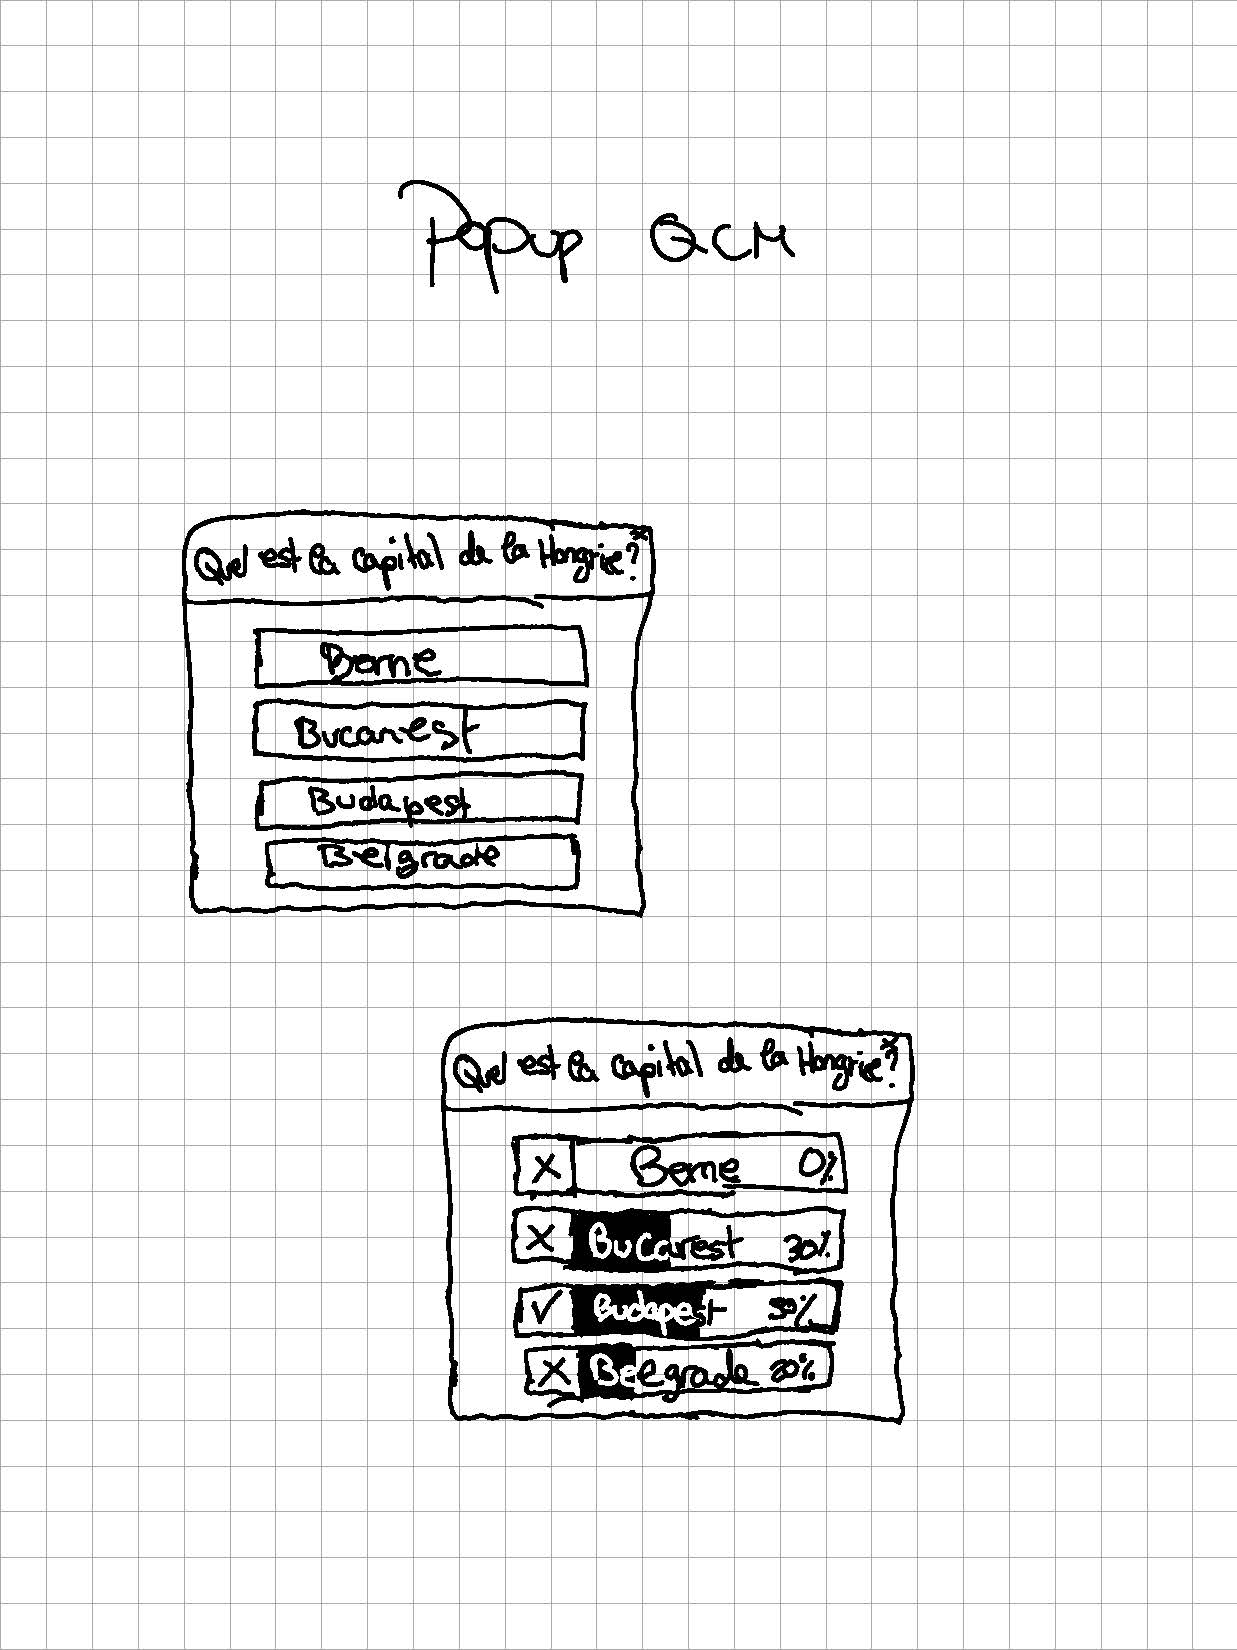 Popup QCM
Quel est la capital de la Hongrie? x
Berne
Bucarest
Budapest
Belgrade
Quel est la capital de la Hongrie? x
X Berne 0%
X Bucarest 30%
✓ Budapest 50%
X Belegrade 20%